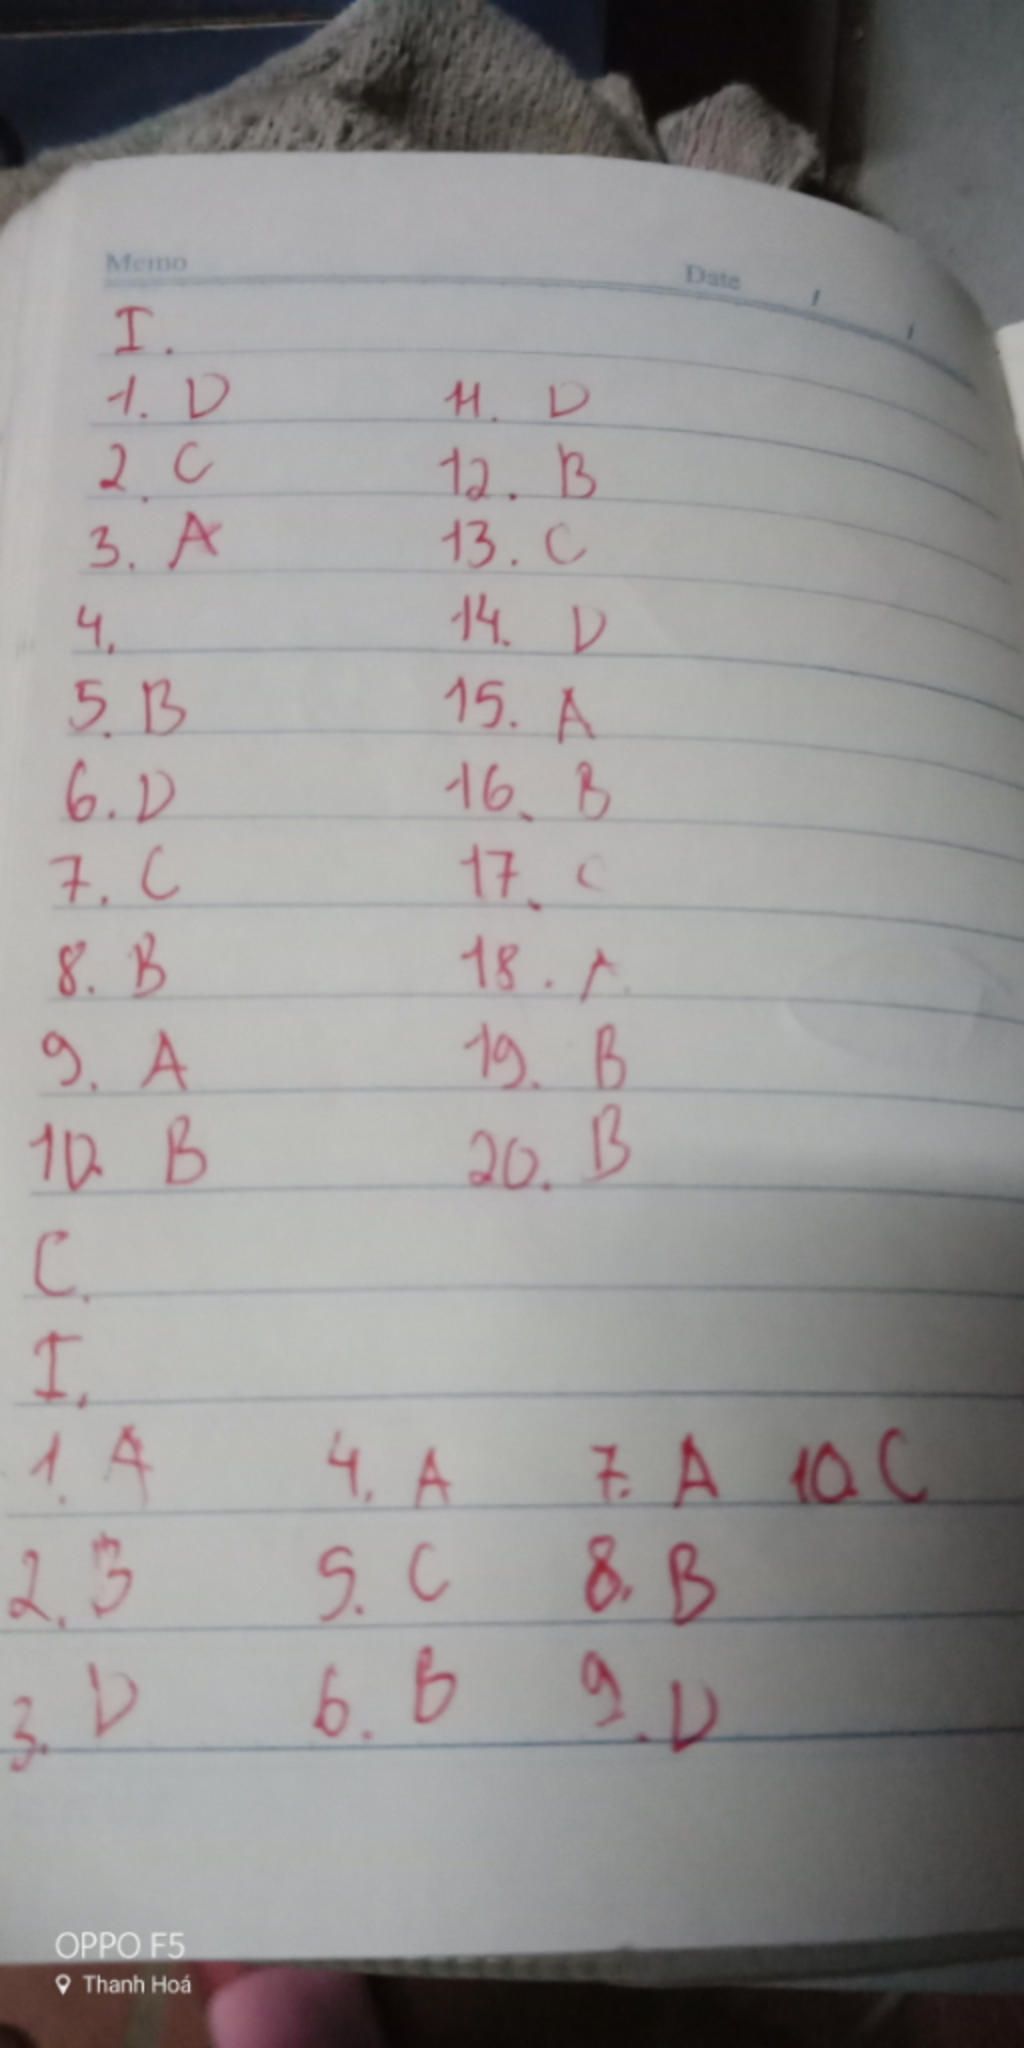 Memo Date / /
I.
1. D 11. D
2. C 12. B
3. A 13. C
4. 14. D
5. B 15. A
6. D 16. B
7. C 17. C
8. B 18. A
9. A 19. B
10. B 20. B
C.
I.
1. A 4. A 7. A 10. C
2. B 5. C 8. B
3. D 6. B 9. D
OPPO F5
Thanh Hoá